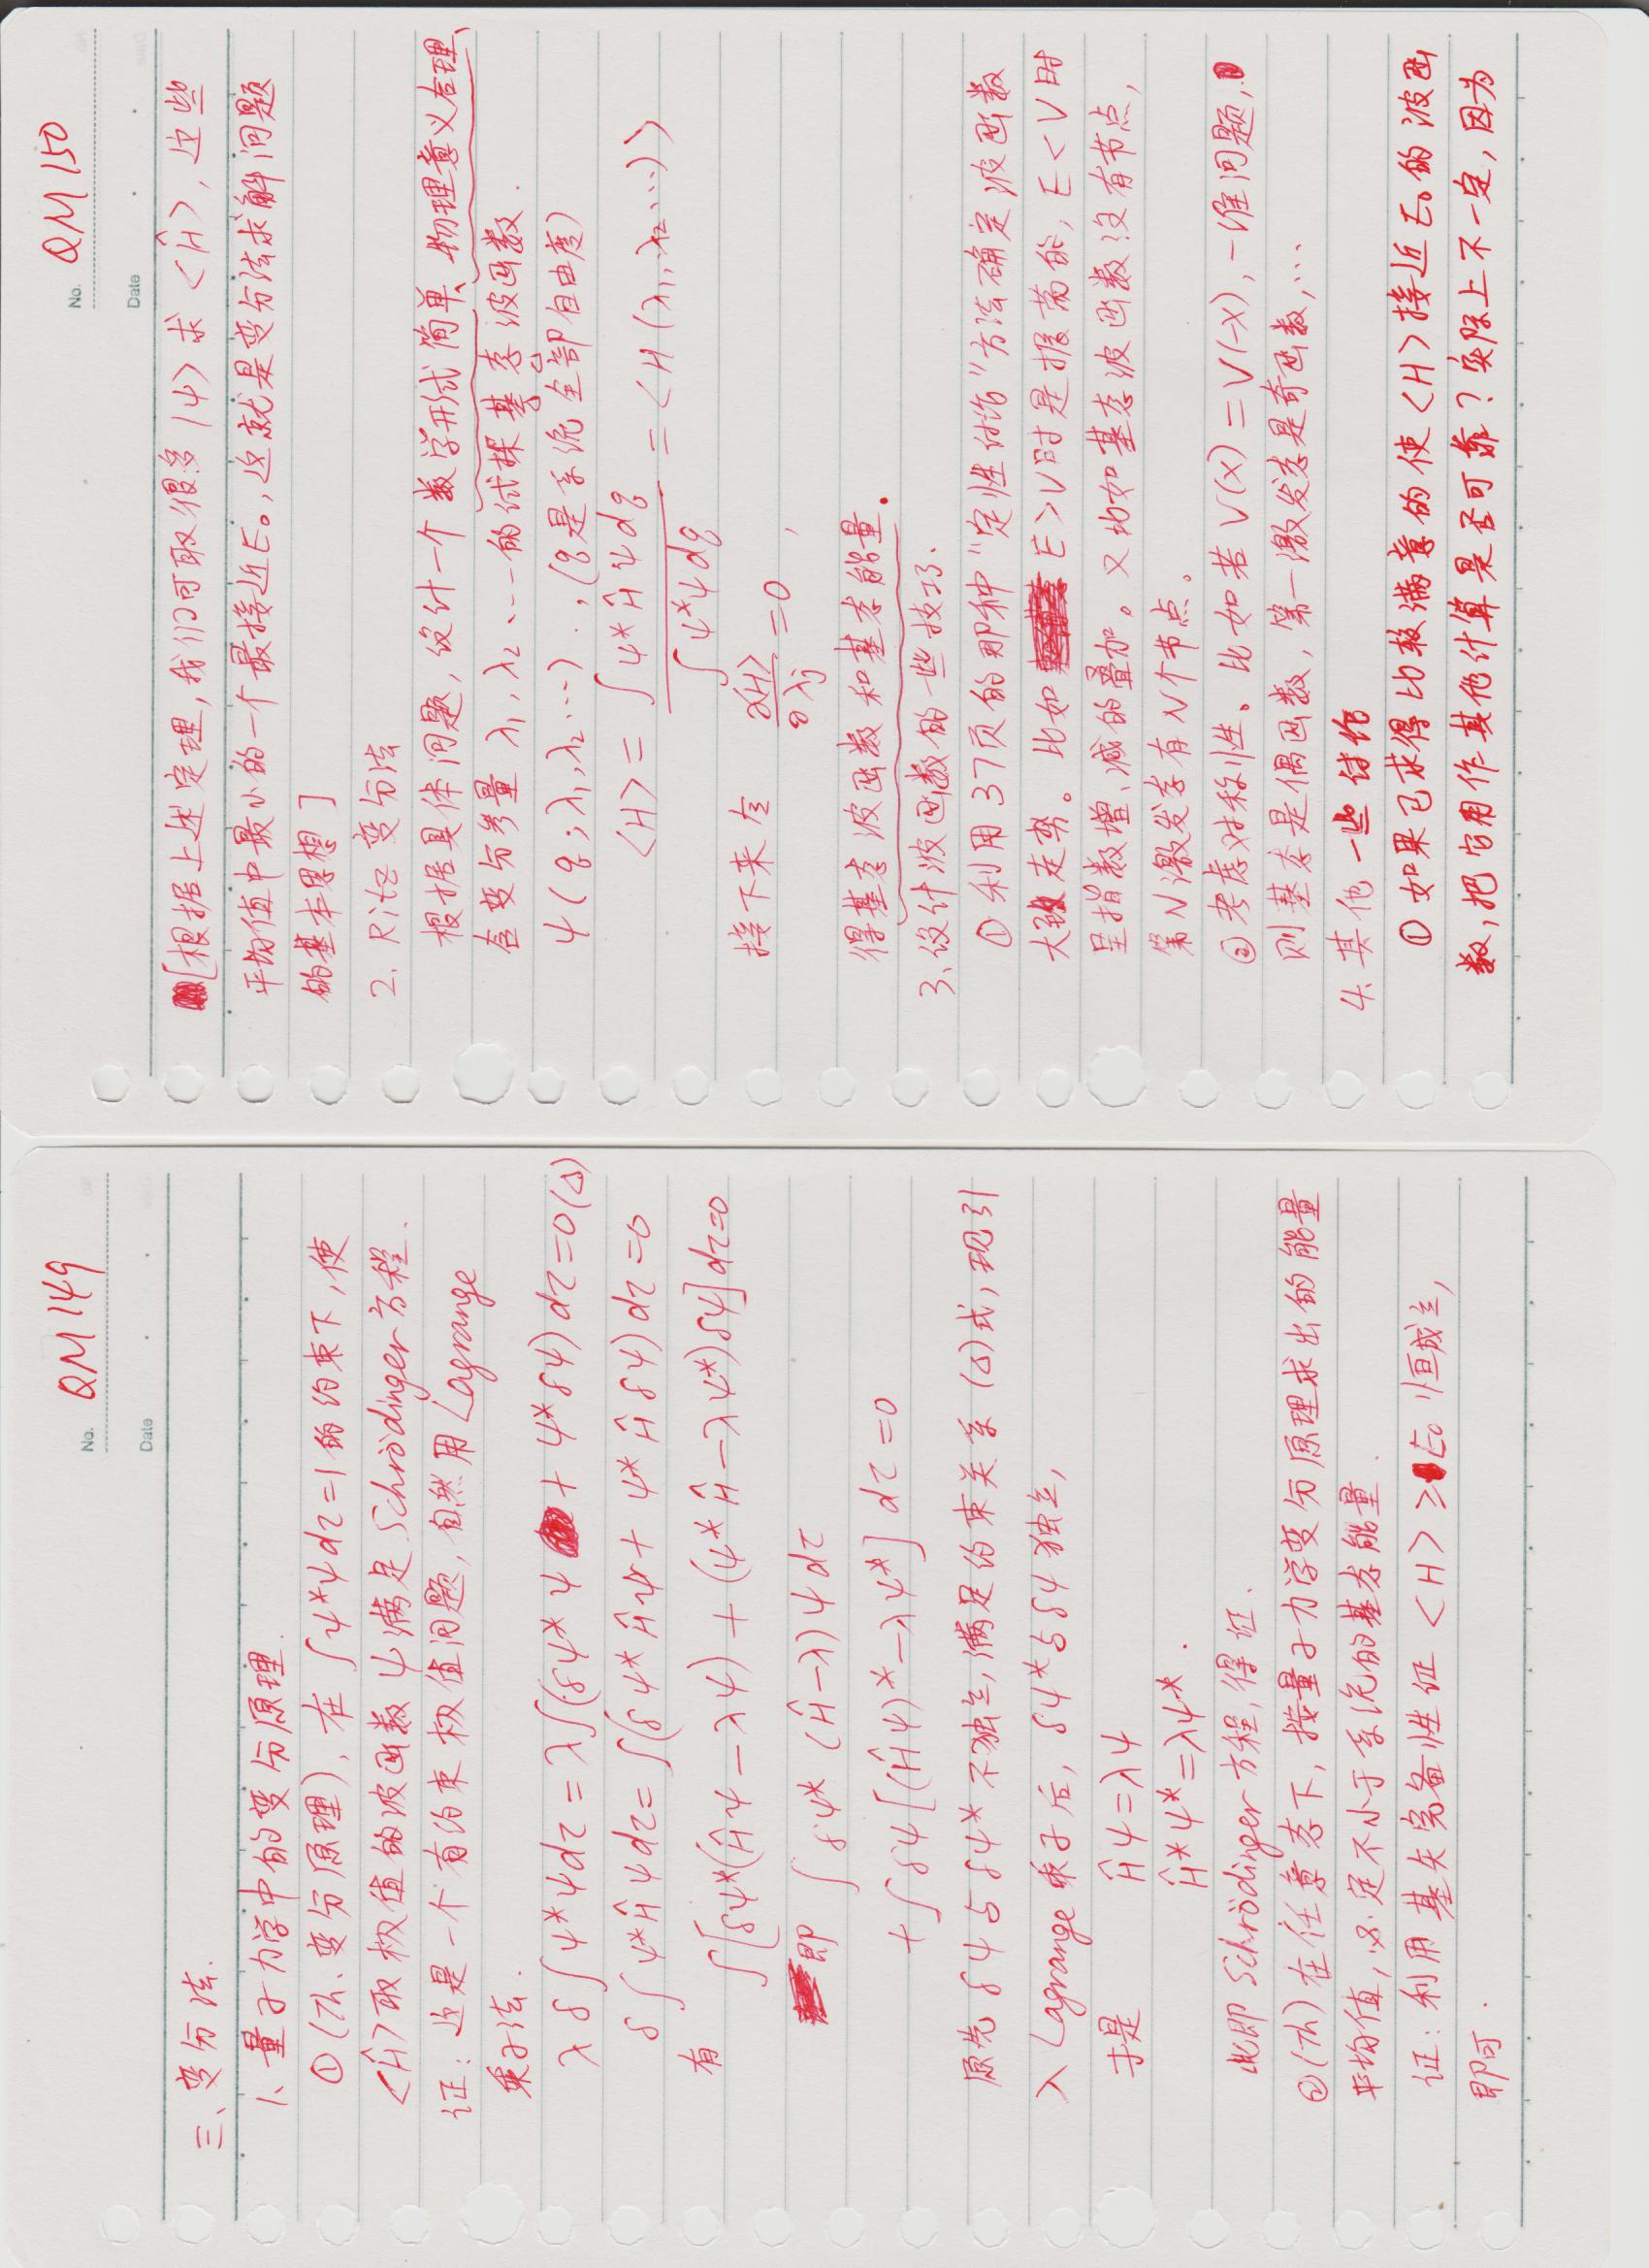 No. QM 149
Date
三、变分法.
1、量子力学中的变分原理.
①(Th. 变分原理), 在 ∫ψ*ψdτ=1 的约束下, 使
<Ĥ>取极值的波函数 ψ 满足 Schrödinger 方程.
证: 这是一个有约束极值问题, 自然用 Lagrange
乘子法.
λδ∫ψ*ψdτ = λ∫(δψ*ψ + ψ*δψ)dτ=0 (Δ)
δ∫ψ*Ĥψdτ = ∫(δψ*Ĥψ + ψ*Ĥδψ)dτ=0
有
∫[δψ*(Ĥψ-λψ) + (ψ*Ĥ-λψ*)δψ]dτ=0
即 ∫δψ*(Ĥ-λ)ψdτ
+∫δψ[(Ĥψ)*-λψ*]dτ=0
原先 δψ与δψ* 不独立, 满足约束关系 (Δ)式, 现引
入 Lagrange 乘子后, δψ*与δψ独立,
于是 Ĥψ=λψ
Ĥ*ψ*=λψ*.
此即 Schrödinger 方程, 得证.
②(Th) 在任意态下, 按量子力学变分原理求出的能量
平均值, 必定不小于系统的基态能量.
证: 利用基矢完备性证 <H> ≥ E₀ 恒成立,
即可.
No. QM 150
Date
[根据上述定理, 我们可取很多 |ψ> 求 <Ĥ>, 这些
平均值中最小的一个最接近E₀, 这就是变分法求解问题
的基本思想]
2. Ritz 变分法
根据具体问题, 设计一个数学形式简单、物理意义合理、
含变分参量 λ₁, λ₂、… 的试探基态波函数.
ψ(q; λ₁, λ₂…)., (q是系统全部自由度)
<H> = ∫ψ*Ĥψdq / ∫ψ*ψdq = <H(λ₁, λ₂…)>
接下来令 ∂<H>/∂λⱼ = 0 ,
得基态波函数和基态能量.
3、设计波函数的一些技巧.
① 利用37页的那种“定性讨论”方法确定波函数
大致走势。比如 E>V时是振荡的, E<V时
呈指数增、减的叠加。又比如基态波函数没有节点,
第N激发态有N个节点。
② 考虑对称性。比如若 V(x)=V(-x), 一维问题,
则基态是偶函数, 第一激发态是奇函数, …
4. 其他一些讨论
① 如果已求得比较满意的使<H>接近E₀的波函
数, 把它用作其他计算是否可靠? 实际上不一定, 因为